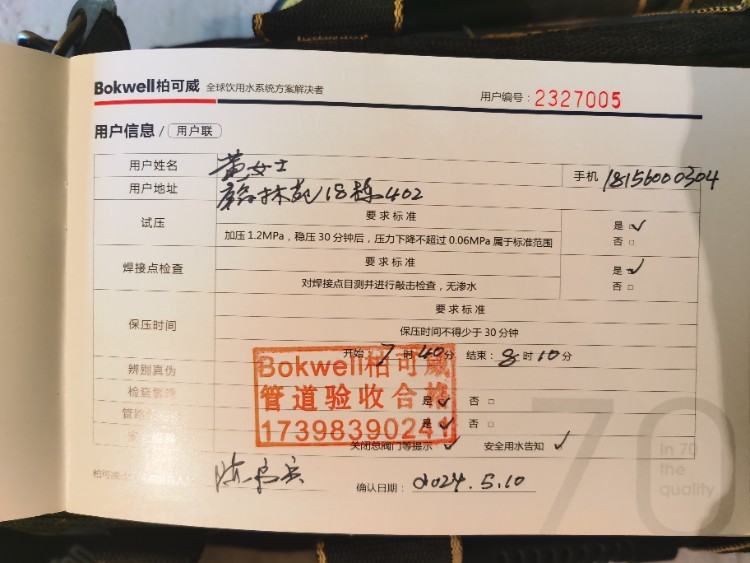 Bokwell柏可威 全球饮用水系统方案解决者
用户编号：2327005
用户信息 / 用户联
用户姓名 黄女士 手机 18156000304
用户地址 18栋402
试压 要求标准 是 ✓
加压1.2MPa，稳压30分钟后，压力下降不超过0.06MPa属于标准范围 否
焊接点检查 要求标准 是 ✓
对焊接点目测并进行敲击检查，无渗水 否
保压时间 要求标准
保压时间不得少于30分钟
开始 7 时 40 分 结束：8 时 10 分
辨别真伪
检查 是 ✓ 否
管路 是 ✓ 否
Bokwell柏可威
管道验收合格
17398390241
关闭总阀门等提示 ✓ 安全用水告知 ✓
柏可威
确认日期：2024.5.10
70
In 70
the
quality